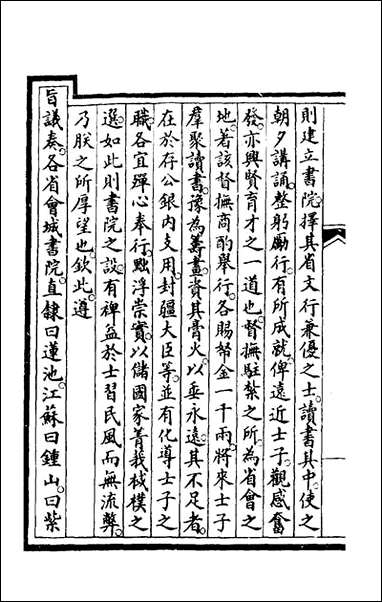 則建立書院。擇其省文行兼優之士。讀書其中。使之
朝夕講誦。整躬勵行。有所成就。俾遠近士子。觀感奮
發。亦興賢育才之一道也。督撫駐紮之所。為省會之
地。著該督撫商酌舉行。各賜帑金一千兩。將來士子
羣聚讀書。豫為籌畫。資其膏火。以垂永遠。其不足者。
在於存公銀內支用。封疆大臣等。並有化導士子之
職。各宜殫心奉行。黜浮崇實。以儲國家菁莪棫樸之
選。如此則書院之設。有裨益於士習民風而無流弊。
乃朕之所厚望也。欽此。遵
旨議奏。各省會城書院。直隸曰蓮池。江蘇曰鍾山。曰紫